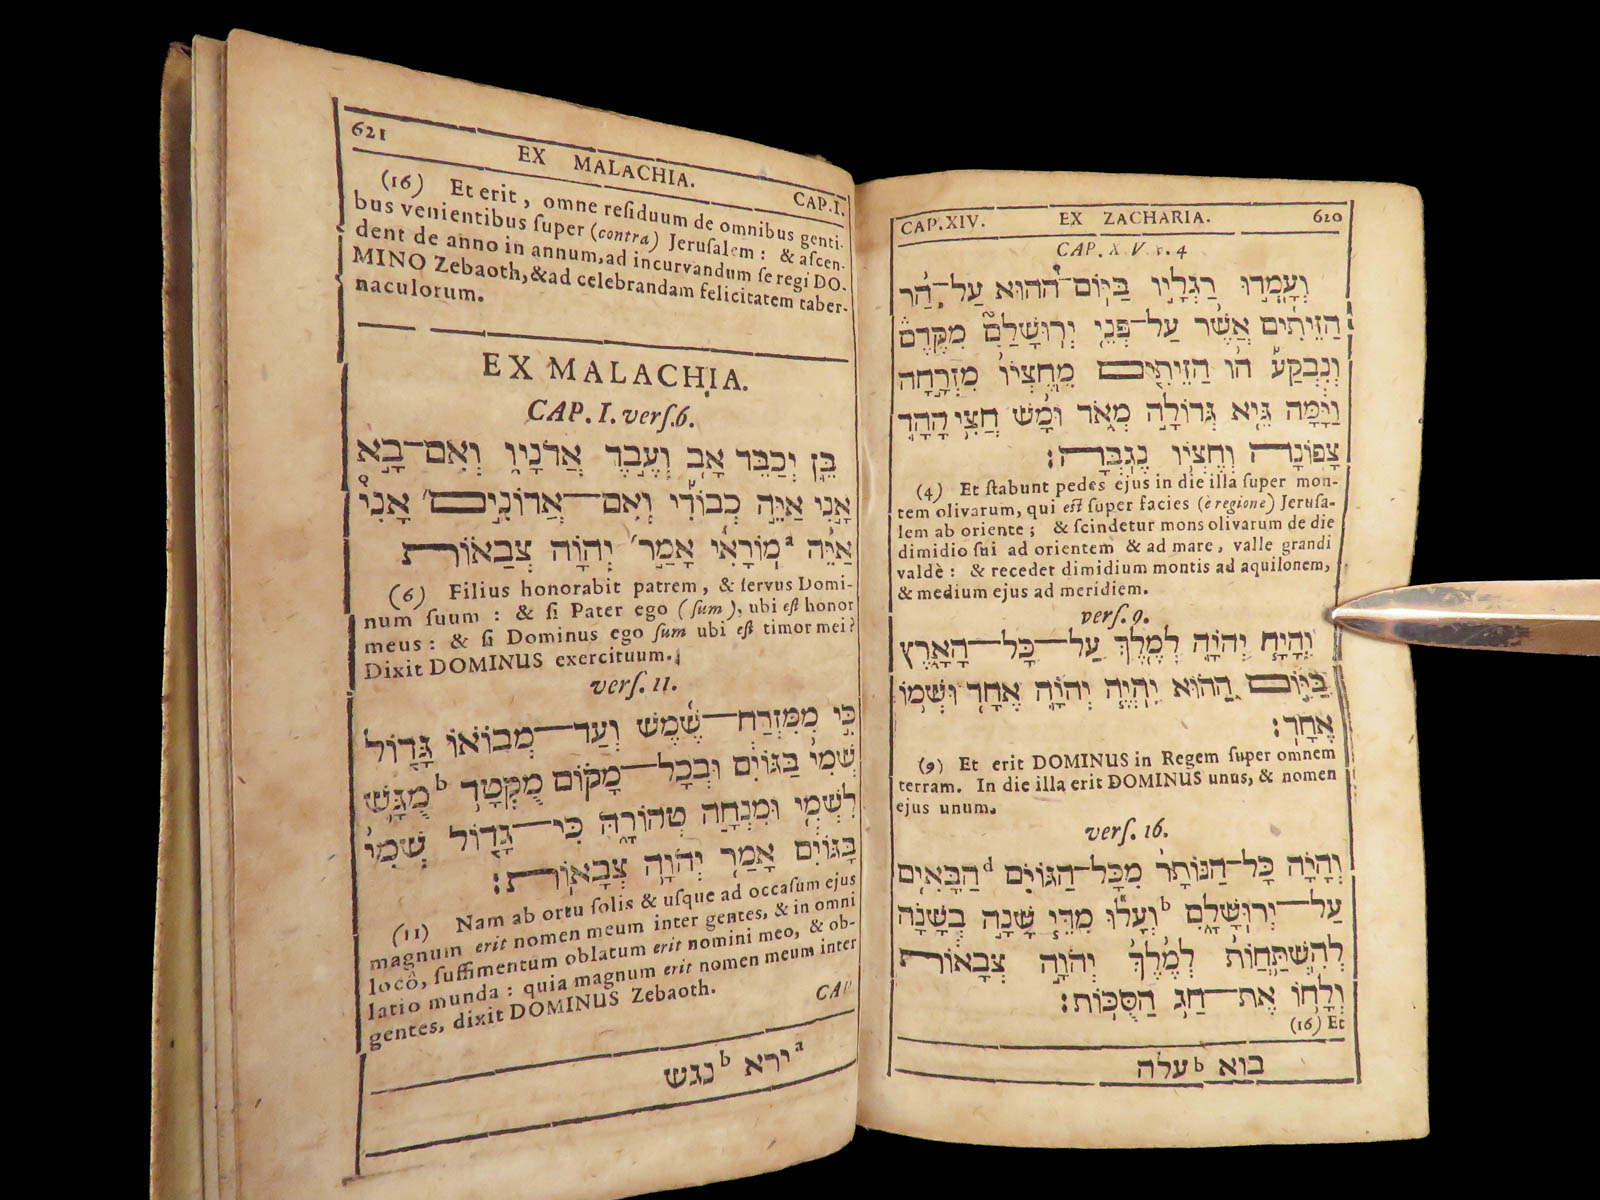 CAP. XIV. EX ZACHARIA. 620
CAP. X V. v. 4
וְעָמְדוּ רַגְלָיו בַּיּוֹם־הַהוּא עַל־הַר
הַזֵּיתִים אֲשֶׁר עַל־פְּנֵי יְרוּשָׁלִַם מִקֶּדֶם
וְנִבְקַע הַר הַזֵּיתִים מֵחֶצְיוֹ מִזְרָחָה
וָיָמָּה גֵּיא גְּדוֹלָה מְאֹד וּמָשׁ חֲצִי הָהָר
צָפוֹנָה וְחֶצְיוֹ נֶגְבָּה׃
(4) Et ſtabunt pedes ejus in die illa ſuper mon-
tem olivarum, qui eſt ſuper facies (è regione) Jeruſa-
lem ab oriente; & ſcindetur mons olivarum de die
dimidio ſui ad orientem & ad mare, valle grandi
valdè: & recedet dimidium montis ad aquilonem,
& medium ejus ad meridiem.
verſ. 9.
וְהָיָה יְהוָֹה לְמֶלֶךְ עַל־כָּל־הָאָרֶץ
בַּיּוֹם הַהוּא יִהְיֶה יְהוָֹה אֶחָד וּשְׁמוֹ
אֶחָד׃
(9) Et erit DOMINUS in Regem ſuper omnem
terram. In die illa erit DOMINUS unus, & nomen
ejus unum.
verſ. 16.
וְהָיָה כָּל־הַנּוֹתָר מִכָּל־הַגּוֹיִם d הַבָּאִים
עַל־יְרוּשָׁלִָם b וְעָלוּ מִדֵּי שָׁנָה בְשָׁנָה
לְהִשְׁתַּחֲוֹת לְמֶלֶךְ יְהוָֹה צְבָאוֹת
וְלָחֹוֹ אֶת־חַג הַסֻּכּוֹת׃
(16) Et
בוא b עלה
621 EX MALACHIA. CAP. I.
(16) Et erit, omne reſiduum de omnibus genti-
bus venientibus ſuper (contra) Jeruſalem: & aſcen-
dent de anno in annum, ad incurvandum ſe regi DO-
MINO Zebaoth, & ad celebrandam felicitatem taber-
naculorum.
EX MALACHIA.
CAP. I. verſ. 6.
בֵּן יְכַבֵּד אָב וְעֶבֶד אֲדֹנָיו וְאִם־בָא
אָנִי אַיֵּה כְבוֹדִי וְאִם־אֲדוֹנִים אָנִי
אַיֵּה a מוֹרָאִי אָמַר יְהוָֹה צְבָאוֹת
(6) Filius honorabit patrem, & ſervus Domi-
num ſuum: & ſi Pater ego (ſum), ubi eſt honor
meus: & ſi Dominus ego ſum ubi eſt timor mei?
Dixit DOMINUS exercituum.
verſ. 11.
כִּי מִמִּזְרַח־שֶׁמֶשׁ וְעַד־מְבוֹאוֹ גָּדוֹל
שְׁמִי בַּגּוֹיִם וּבְכָל־מָקוֹם מֻקְטָר b מֻגָּשׁ
לִשְׁמִי וּמִנְחָה טְהוֹרָה כִּי־גָדוֹל שְׁמִי
בַּגּוֹיִם אָמַר יְהוָֹה צְבָאוֹת׃
(11) Nam ab ortu ſolis & uſque ad occaſum ejus
magnum erit nomen meum inter gentes, & in omni
locô, ſuffimentum oblatum erit nomini meo, & ob-
latio munda: quia magnum erit nomen meum inter
gentes, dixit DOMINUS Zebaoth.
CAP.
a ירא b נגש